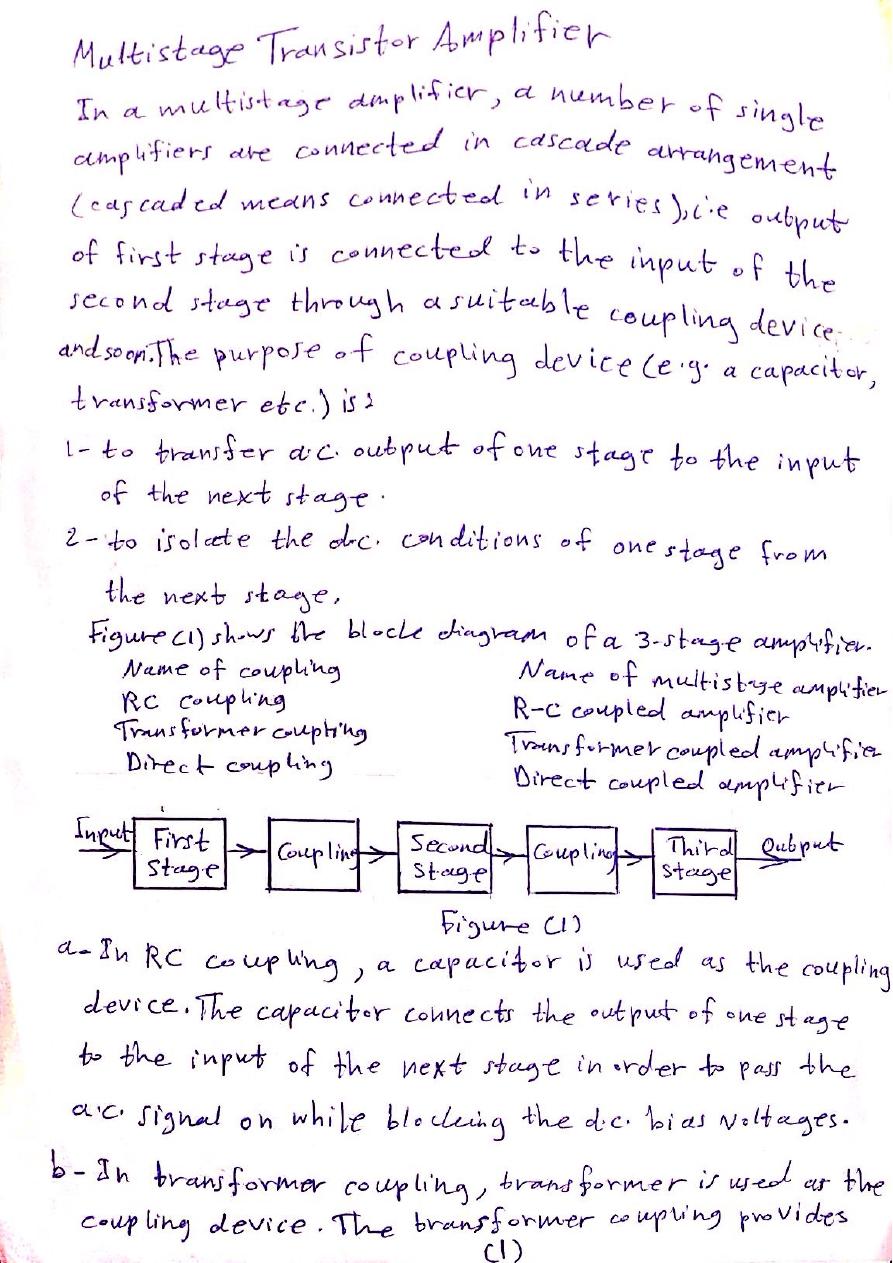 Multistage Transistor Amplifier
In a multistage amplifier, a number of single
amplifiers are connected in cascade arrangement
(cascaded means connected in series), i.e output
of first stage is connected to the input of the
second stage through a suitable coupling device
and so on. The purpose of coupling device (e.g. a capacitor,
transformer etc.) is:
1- to transfer a.c. output of one stage to the input
of the next stage.
2- to isolate the d.c. conditions of one stage from
the next stage.
Figure (1) shows the block diagram of a 3-stage amplifier.
Name of coupling Name of multistage amplifier
RC coupling R-C coupled amplifier
Transformer coupling Transformer coupled amplifier
Direct coupling Direct coupled amplifier
Input First Coupling Second Coupling Third Output
Stage Stage Stage
Figure (1)
a- In RC coupling, a capacitor is used as the coupling
device. The capacitor connects the output of one stage
to the input of the next stage in order to pass the
a.c. signal on while blocking the d.c. bias voltages.
b- In transformer coupling, transformer is used as the
coupling device. The transformer coupling provides
(1)